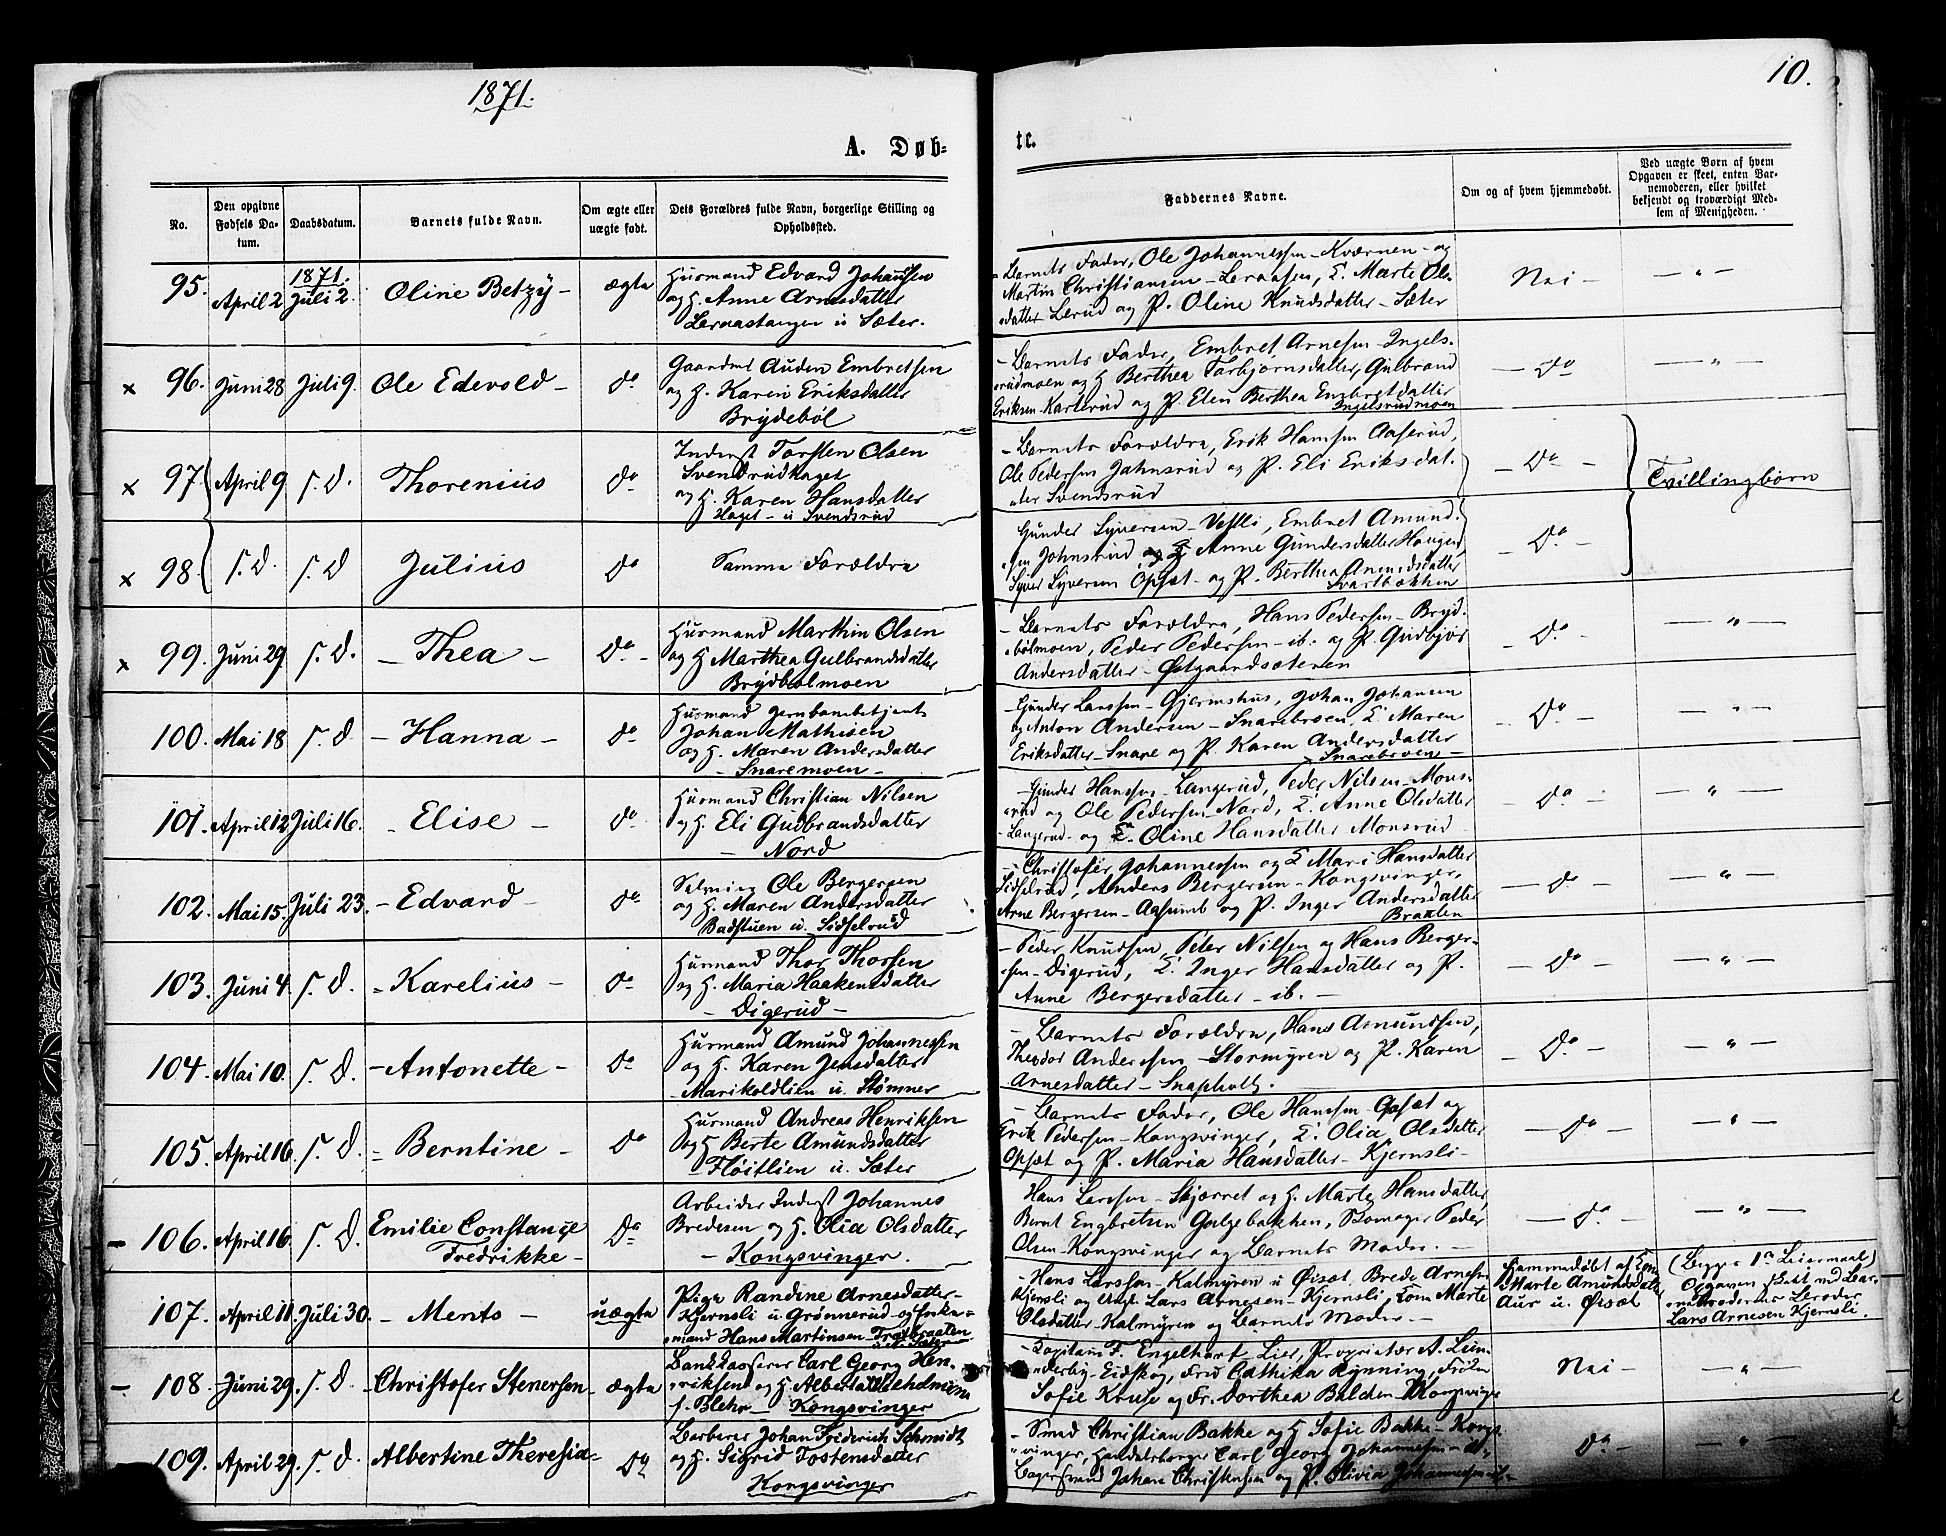 1871.
10.
A. Døb-
te.
No.
Den opgivne Fødsels Da-
tum.
Daabsdatum.
Barnets fulde Navn.
Om ægte eller
uægte født.
Dets Forældres fulde Navn, borgerlige Stilling og
Opholdssted.
Faddernes Navne.
Om og af hvem hjemmedøbt.
Ved uægte Børn af hvem
Opgaven er skeet, enten Bar-
nemoderen, eller hvilket
bekjendt og troværdigt Med-
lem af Menigheden.
95. April 2 1871. Juli 2. Oline Betzy - ægte
Husmand Edvard Johansen
og H. Anne Arnesdatter
Leraastangen u. Sæter.
- Barnets Fader, Ole Johannessen - Kværnen - og
Martin Christiansen - Leraasen, E. Marte Ols-
datter Lerud og P. Oline Knudsdatter - Sæter
Nei - - " -
x 96. Juni 28 Juli 9. Ole Edevold - do
Gaardmd Auden Embretsen
og H. Karen Eriksdatter
Brydebøl
- Barnets Fader, Embret Arnesen - Ingels-
rudmoen og H Berthea Torbjørnsdatter, Gulbrand
Eriksen - Karterud og P. Elen Berthea Embretdatter
Ingelsrudmoen
- do - " -
x 97. April 9 s. D. Thorenius do
Inderst Torsten Olsen
Svendsrudhaget
og H. Karen Hansdatter
Haget - u Svendsrud
- Barnets Forældre, Erik Hansen Aaserud,
Ole Pedersen Jahnsrud og P. Eli Eriksdat-
ter Svendsrud
- Do -
Tvillingbørn
x 98. s. D. s. D Julius do
Samme Forældre
Gunder Syversen - Vestli, Embret Amund-
sen Johnsrud og H Anne Gundersdatter Haugen,
Syver Syversen Opset - og P. Berthea Amundsdatter
Svartbakken
- Do -
x 99. Juni 29 s. D. - Thea - Do
Husmand Marthin Olsen
og H Marthea Gulbrandsdatter
Brydbølmoen
- Barnets Forældre, Hans Pedersen - Bryd-
bølmoen, Peder Pedersen - ib. og P. Gudbjør
Andersdatter - Østgaardsæteren
- Do - - " -
100. Mai 18 s. D - Hanna - do
Husmand Jernbanebetjent
Johan Mathisen
og H. Maren Andersdatter
- Snaremoen -
- Gunder Larssen - Gjermshus, Johan Johansen
og Anton Andersen - Snarebroen, E. Maren
Eriksdatter - Snare og P. Karen Andersdatter
- Snarebroen -
- Do - " -
101. April 12 Juli 16. - Elise - do
Husmand Christian Nilsen
og H. Eli Gudbrandsdatter
- Nord
- Gunder Hanssen - Langerud, Peder Nilsen - Mons-
rud og Ole Pedersen - Nord, E. Anne Olsdatter
- Langerud - og E. Oline Hansdatter Monsrud
- do - " -
102. Mai 15. Juli 23. - Edvard - do
Ole Bergersen
og H. Maren Andersdatter
Badstuen u. Sidselrud
- Christofer Johannessen og E Mari Hansdatter
Sidselrud, Anders Bergersen - Kongsvinger,
Arne Bergersen - Aasumb og P. Inger Andersdatter
Braaten
- do - - " -
103. Juni 4. s. D. - Karelius - do
Husmand Thor Thorsen
og H. Maria Haakensdatter
- Digerud -
- Peder Knudsen, Peter Nilsen og Hans Berger-
sen - Digerud, E. Inger Hansdatter og P.
Anne Bergersdatter - ib. -
- do - - " -
104. Mai 10. s. D. - Antonette - do
Husmand Amund Johannessen
og H. Karen Jensdatter
- Marikoldlien u. Stømner
- Barnets Forældre, Hans Amundsen,
Theodor Andersen - Stormyren og P. Karen
Arnesdatter - Snapholt.
- Do - - " -
105. April 16. s. D. - Berntine - do
Husmand Andreas Henriksen
og H Berte Amundsdatter
Fløitlien u. Sæter
- Barnets Fader, Ole Hanssen - Opsæt og
Erik Pedersen - Kongsvinger, E. Olia Olsdatter
Opsæt og P. Maria Hansdatter - Kjernsli -
- do - - " -
- 106. April 16. s. D. Emilie Constanze
Fredrikke - Do
Arbeider Inderst Johannes
Bredesen og H. Olia Olsdatter
- Kongsvinger.
Hans Larssen - Skjærret og H. Marte Hansdatter
Bernt Engbretsen Galgebakken, Skomager Peder
Olsen - Kongsvinger og Barnets Moder. -
- do - - " -
107. April 11. Juli 30. - Ments - uægte
Pige Randine Arnesdatter -
Kjernsli u Grønnerud - og Enke-
mand Hans Martinsen - Trætbraaten
u. N. Sæter
- Hans Larssen - Kalmyren u Øisæt, Brede Arnesen
Kjernsli og Ungk. Lars Arnesen - Kjernsli, Kone Marte
Olsdatter - Kalmyren og Barnets Moder -
Hjemmedøbt af Kone
Marte Amundsdatter
Aur u. Øisæt
(Begges 1ste Leiermaal)
Opgaven skeet ved Bar-
nemoderens Broder
Lars Arnesen Kjernsli.
- 108. Juni 29. s. D. - Christofer Stenersen - ægte
Bankkasserer Carl Georg Hen-
riksen og H. Alberta Vilhelmine
f. Blehr - Kongsvinger
- Kapitain F. Engelhart - Lier, Proprietær A. Lun-
derby - Eidskog, Frue Cathika Rynning, Frøken
Sofie Kruse og Fr. Dorthea Balden - Kongsvinger
Nei - - " -
109. April 29. s. D. Albertine Theresia - Do
Barberer Johan Friderich Schmidt
og H. Sigrid Tostensdatter
Kongsvinger
- Smed Christian Bakke og H Sofie Bakke - Kongs-
vinger, Handelsborger Carl Georg Johannesen
Johan Christiansen og P. Olivia Johannessen - ib -
do - - " -